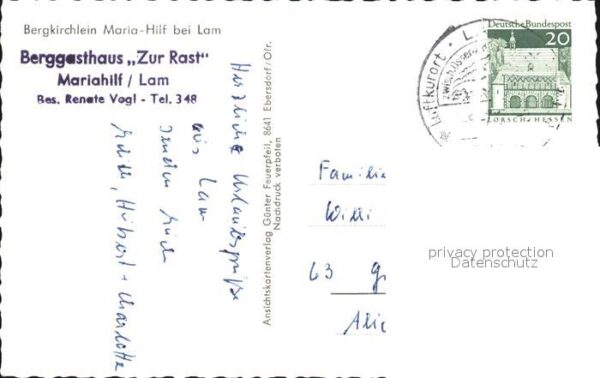 Bergkirchlein Maria-Hilf bei Lam
Berggasthaus „Zur Rast"
Mariahilf / Lam
Bes. Renate Vogl - Tel. 348
Herzliche Urlaubsgrüße
aus Lam
senden Euch
Edith, Hubert + Charlotte
Ansichtskartenverlag Günter Feuerpfeil, 8641 Ebersdorf/Ofr.
Nachdruck verboten
Luftkurort · L
Deutsche Bundespost
20
LORSCH/HESSEN
Familie
Willi
63 G
privacy protection
Datenschutz